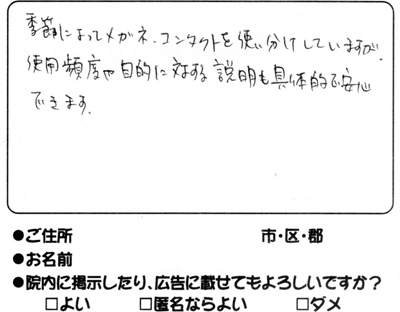 季節によってメガネ、コンタクトを使い分けしていますが、
使用頻度や目的に対する説明も具体的で安心
できます。
●ご住所 市・区・郡
●お名前
●院内に掲示したり、広告に載せてもよろしいですか？
□よい □匿名ならよい □ダメ